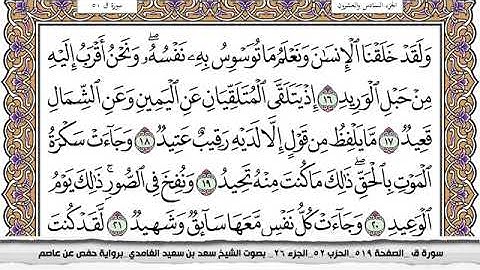 الجزء السادس والعشرون
سورة ق ٥١
وَلَقَدْ خَلَقْنَا ٱلْإِنسَٰنَ وَنَعْلَمُ مَا تُوَسْوِسُ بِهِۦ نَفْسُهُۥ ۖ وَنَحْنُ أَقْرَبُ إِلَيْهِ
مِنْ حَبْلِ ٱلْوَرِيدِ ١٦ إِذْ يَتَلَقَّى ٱلْمُتَلَقِّيَانِ عَنِ ٱلْيَمِينِ وَعَنِ ٱلشِّمَالِ
قَعِيدٌ ١٧ مَّا يَلْفِظُ مِن قَوْلٍ إِلَّا لَدَيْهِ رَقِيبٌ عَتِيدٌ ١٨ وَجَآءَتْ سَكْرَةُ
ٱلْمَوْتِ بِٱلْحَقِّ ۖ ذَٰلِكَ مَا كُنتَ مِنْهُ تَحِيدُ ١٩ وَنُفِخَ فِى ٱلصُّورِ ۚ ذَٰلِكَ يَوْمُ
ٱلْوَعِيدِ ٢٠ وَجَآءَتْ كُلُّ نَفْسٍ مَّعَهَا سَآئِقٌ وَشَهِيدٌ ٢١ لَّقَدْ كُنتَ
سورة ق _ الصفحة ٥١٩ _ الحزب ٥٢ _ الجزء ٢٦ _ بصوت الشيخ سعد بن سعيد الغامدي _ برواية حفص عن عاصم